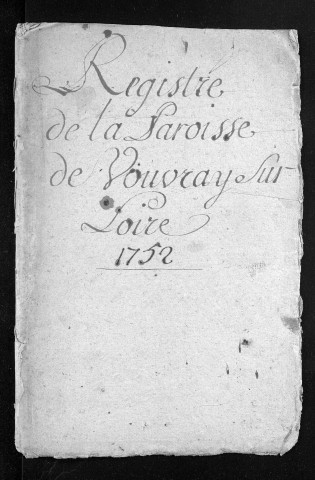 Registre
de la Paroisse
de Vouvray Sur
Loire
1752